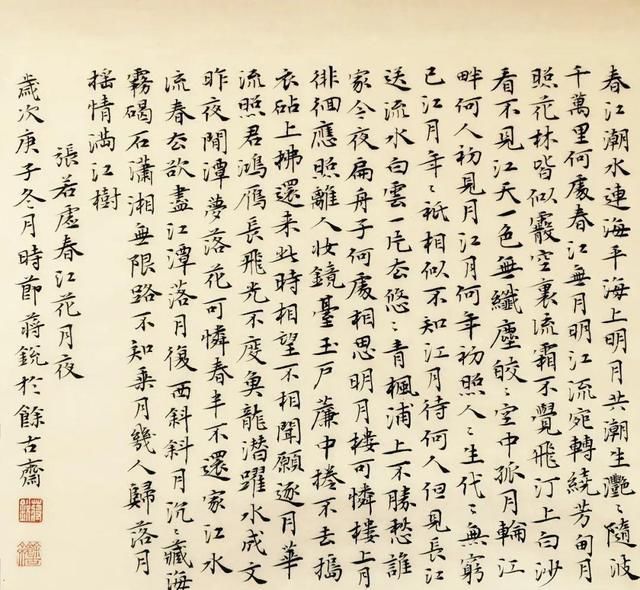 春江潮水連海平海上明月共潮生灧〻隨波
千萬里何處春江無月明江流宛轉繞芳甸月
照花林皆似霰空裏流霜不覺飛汀上白沙
看不見江天一色無纖塵皎〻空中孤月輪江
畔何人初見月江月何年初照人〻生代〻無窮
已江月年〻祇相似不知江月待何人但見長江
送流水白雲一片去悠〻青楓浦上不勝愁誰
家今夜扁舟子何處相思明月樓可憐樓上月
徘徊應照離人妝鏡臺玉戶簾中捲不去搗
衣砧上拂還來此時相望不相聞願逐月華
流照君鴻雁長飛光不度魚龍潛躍水成文
昨夜閒潭夢落花可憐春半不還家江水
流春去欲盡江潭落月復西斜斜月沉〻藏海
霧碣石瀟湘無限路不知乘月幾人歸落月
搖情滿江樹
張若虛春江花月夜
歲次庚子冬月時節蔣銳於餘古齋